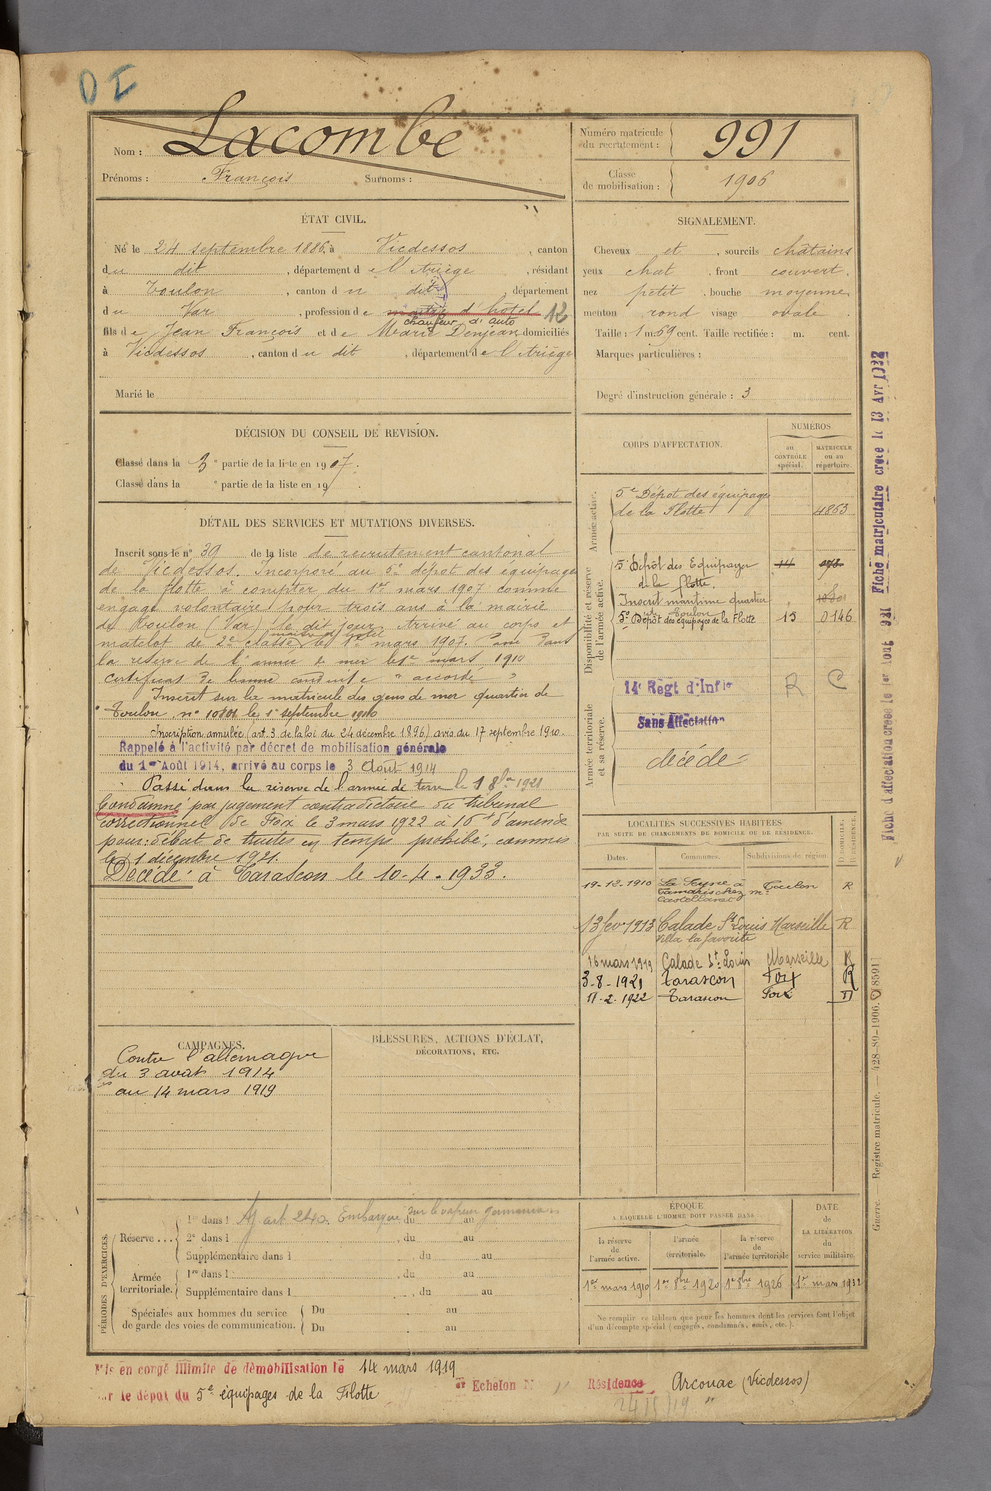 DI
Nom : Lacombe
Prénoms : François Surnoms :
Numéro matricule du recrutement : 991
Classe de mobilisation : 1906
ÉTAT CIVIL.
Né le 24 septembre 1886, à Vicdessos, canton
du dit, département de l'Ariège, résidant
à Toulon, canton du dit, département
du Var, profession de d'hotel 12
chauffeur d'auto
fils de Jean François et de Marie Denjean domiciliés
à Vicdessos, canton du dit, département de l'Ariège
Marié le
SIGNALEMENT.
Cheveux et, sourcils châtains
yeux chat, front couvert.
nez petit, bouche moyenne,
menton rond visage ovale.
Taille : 1 m. 59 cent. Taille rectifiée : m. cent.
Marques particulières :
Degré d'instruction générale : 3
DÉCISION DU CONSEIL DE REVISION.
Classé dans la 3e partie de la liste en 1907.
Classé dans la e partie de la liste en 19 .
DÉTAIL DES SERVICES ET MUTATIONS DIVERSES.
Inscrit sous le n° 39 de la liste de recrutement cantonal
de Vicdessos. Incorporé au 5e dépot des équipages
de la flotte à compter du 1er mars 1907 comme
engagé volontaire pour trois ans à la mairie
de Toulon (Var) le dit jour. Arrivé au corps et
matelot de 2e classe le 1er mars 1907. Passé dans
la réserve de l'armée de mer le 1er mars 1910
Certificat de bonne conduite "accordé"
Inscrit sur la matricule des gens de mer quartier de
Toulon, n° 10801 le 1er septembre 1910
Inscription annulée (art. 3. de la loi du 24 décembre 1896) avis du 17 septembre 1920.
Rappelé à l'activité par décret de mobilisation générale
du 1er Août 1914, arrivé au corps le 3 Août 1914
Passé dans la réserve de l'armée de terre le 1 8bre 1921
Condamné par jugement contradictoire du tribunal
correctionnel de Foix le 3 mars 1922 à 16f d'amende
pour: débat de truites en temps prohibé, commis
le 1 décembre 1921.
Décédé à Tarascon le 10-4-1933.
CORPS D'AFFECTATION.
NUMÉROS
au contrôle spécial.
matricule ou au répertoire.
Armée active.
5e Dépôt des équipages
de la Flotte 4863
Disponibilité et réserve de l'armée active.
5e Dépôt des Equipages
de la flotte 14
Inscrit maritime quartier
de Toulon
5e Dépôt des équipages de la Flotte 15 0146
Armée territoriale et sa réserve.
14e Régt d'Infie R C
Sans Affectation
décédé
Fiche d'affectation créée le 1er Août 1921 Fiche matriculaire créée le 13 Avr 1922
LOCALITÉS SUCCESSIVES HABITÉES
PAR SUITE DE CHANGEMENTS DE DOMICILE OU DE RÉSIDENCE.
Dates. Communes. Subdivisions de région. D. DOMICILE. R. RÉSIDENCE.
19-12-1910 La Seyne à Tamaris chez Mr Castellanet Toulon R
13 fev 1913 Calade St Louis Marseille R
Villa la favorite
16 mars 1919 Calade St Louis Marseille R
3-8-1921 Tarascon Foix R
11-2-1922 Tarascon Foix D
CAMPAGNES.
Contre l'allemagne
du 3 août 1914
au 14 mars 1919
BLESSURES, ACTIONS D'ÉCLAT,
DÉCORATIONS, ETC.
PÉRIODES D'EXERCICES.
Réserve ... 1re dans l Embarqué sur le vapeur du au
2e dans l , du au
Supplémentaire dans l , du au
Armée territoriale. 1re dans l , du au
Supplémentaire dans l , du au
Spéciales aux hommes du service de garde des voies de communication. Du au
Du au
ÉPOQUE
À LAQUELLE L'HOMME DOIT PASSER DANS
la réserve de l'armée active. l'armée territoriale. la réserve de l'armée territoriale
DATE de LA LIBÉRATION du service militaire.
1er mars 1910 1er 8bre 1920 1er 8bre 1926 1er mars 1932
Ne remplir ce tableau que pour les hommes dont les services font l'objet
d'un décompte spécial (engagés, condamnés, omis, etc.).
Guerre. — Registre matricule. — 428-89-1906. [8591]
Mis en congé illimité de démobilisation le 14 mars 1919
par le dépôt du 5e équipages de la Flotte Echelon N° Résidence Arconac (Vicdessos)